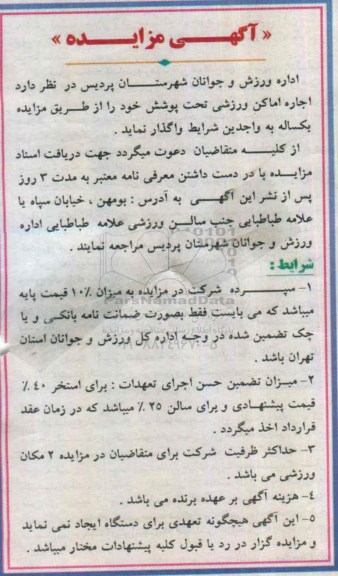 « آگهـــی مزایـــده »
اداره ورزش و جوانان شهرستـــان پردیس در نظر دارد
اجاره اماکن ورزشی تحت پوشش خود را از طریق مزایده
یکساله به واجدین شرایط واگذار نماید .
از کلیـــه متقاضیان دعوت میگردد جهت دریافت اسناد
مزایده با در دست داشتن معرفی نامه معتبر به مدت ۳ روز
پس از نشر این آگهـــی به آدرس : بومهن ، خیابان سپاه یا
علامه طباطبایی جنب سالـــن ورزشی علامه طباطبایی اداره
ورزش و جوانان شهرستان پردیس مراجعه نمایند .
شرایط :
۱- سپـــرده شرکت در مزایده به میزان ۱۰٪ قیمت پایه
میباشد که می بایست فقط بصورت ضمانت نامه بانکـــی و یا
چک تضمین شده در وجـــه اداره کل ورزش و جوانان استان
تهران باشد .
۲- میـــزان تضمین حسن اجرای تعهدات : برای استخر ۴۰ ٪
قیمت پیشنهـــادی و برای سالن ۲۵ ٪ میباشد که در زمان عقد
قرارداد اخذ میگردد .
۳- حداکثر ظرفیت شرکت برای متقاضیان در مزایده ۲ مکان
ورزشی می باشد .
۴- هزینه آگهی بر عهده برنده می باشد .
۵- این آگهی هیچگونه تعهدی برای دستگاه ایجاد نمی نماید
و مزایده گزار در رد یا قبول کلیه پیشنهادات مختار میباشد .
ParsNamadData